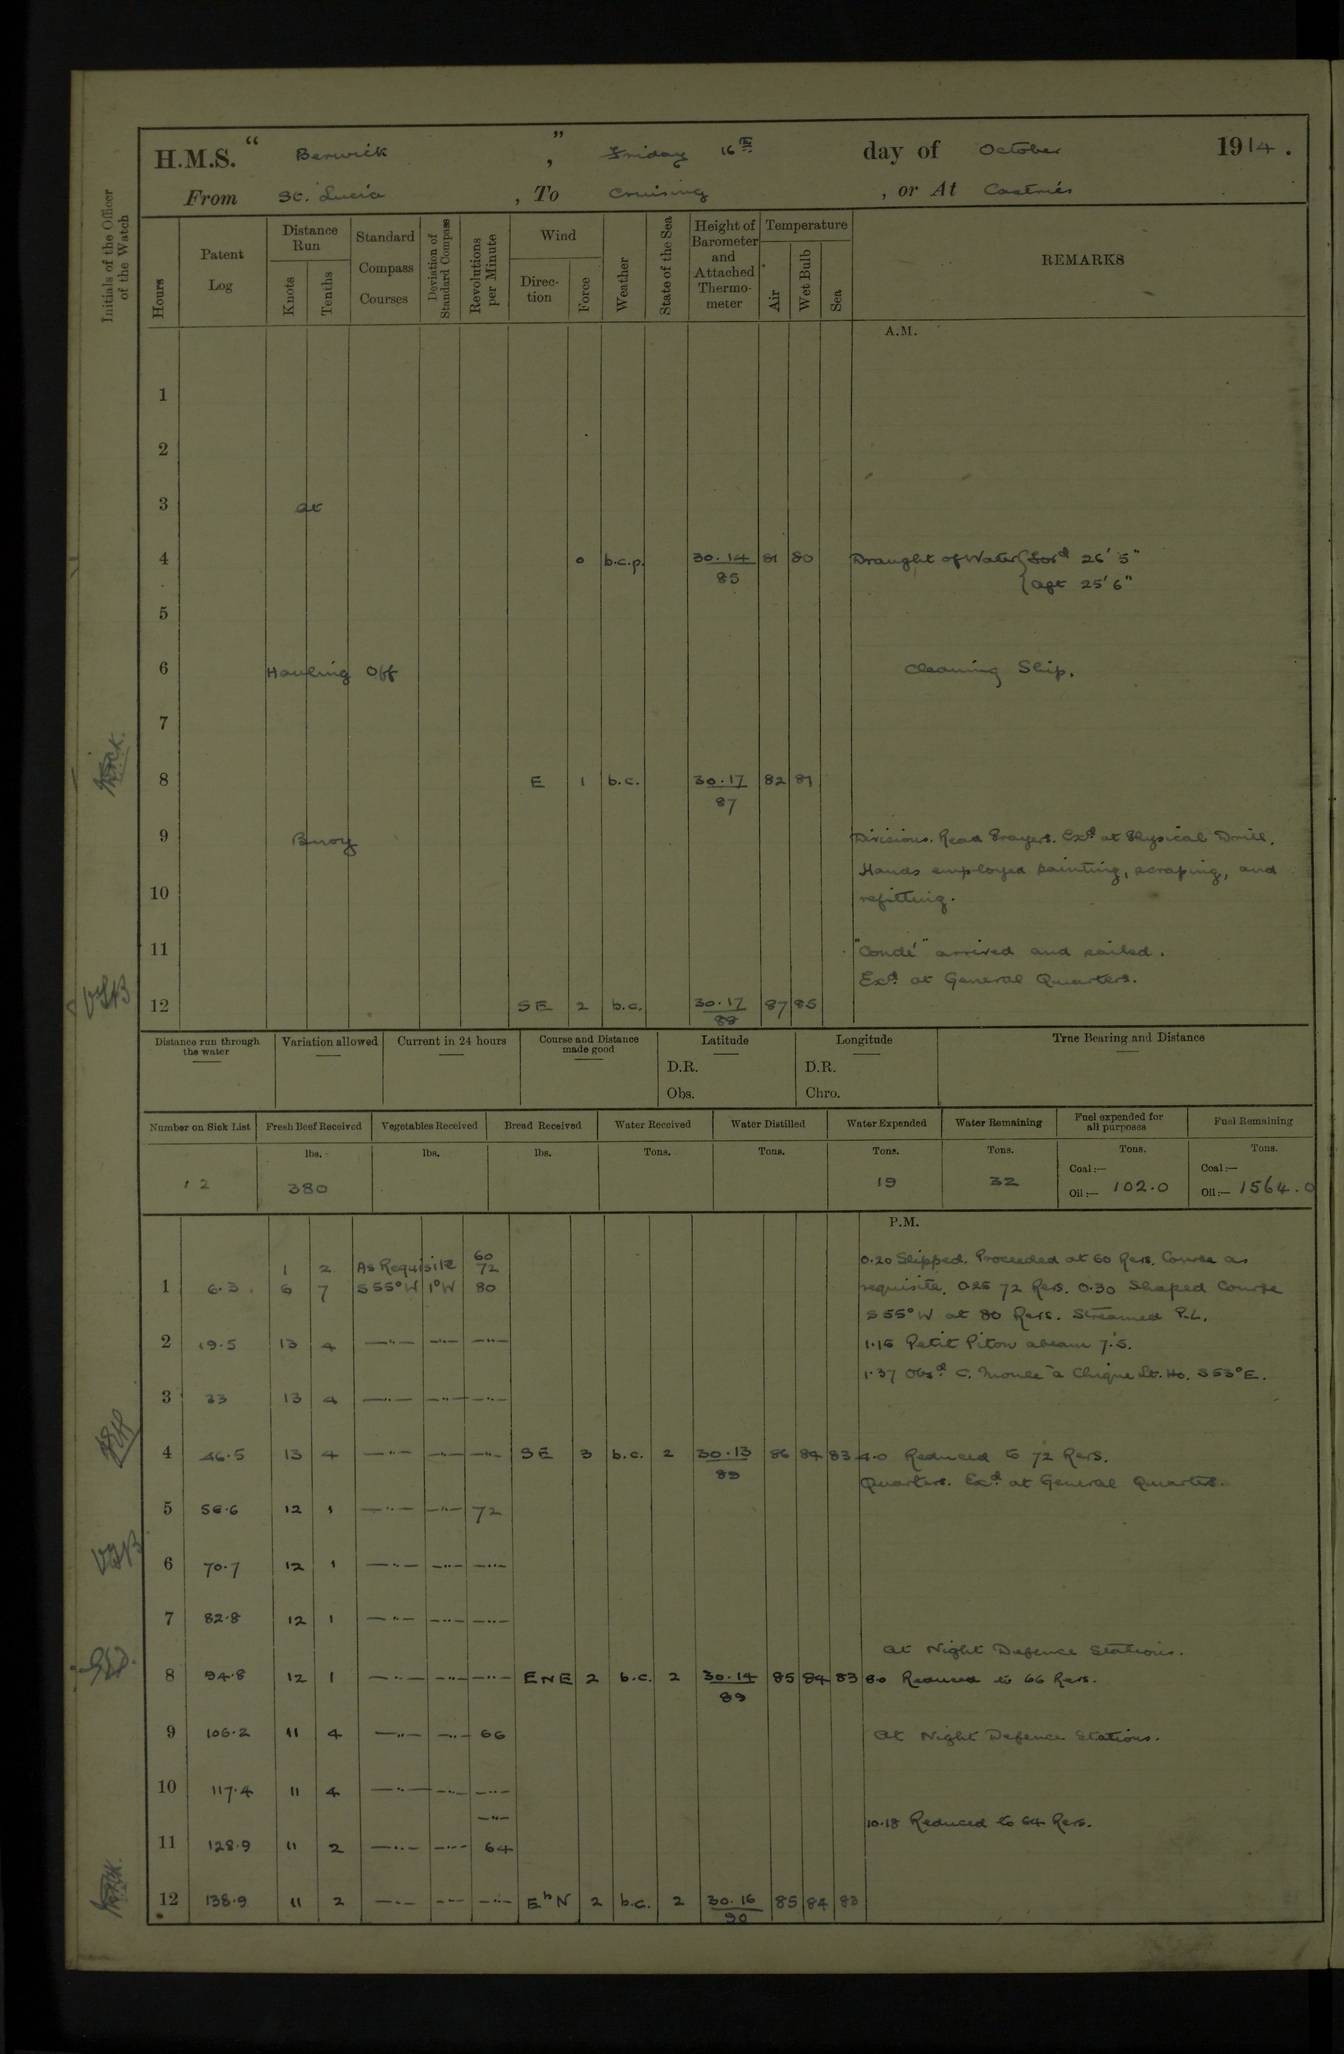 H.M.S. “ Berwick ”, Friday 16th day of October 1914.
From St. Lucia, To Cruising, or At Castries
Initials of the Officer of the Watch
Hours
Patent Log
Distance Run
Knots
Tenths
Standard Compass Courses
Deviation of Standard Compass
Revolutions per Minute
Wind
Direc-tion
Force
Weather
State of the Sea
Height of Barometer and Attached Thermo-meter
Temperature
Air
Wet Bulb
Sea
REMARKS
A.M.
1
2
3 at
4 0 b.c.p. 30.14 81 80 Draught of Water { Ford 26' 5"
85 { aft 25' 6"
5
6 Hauling Off Cleaning Ship.
7
8 E 1 b.c. 30.17 82 81
87
9 Buoy Divisions. Read Prayers. Exd. at Physical Drill.
Hands employed painting, scraping, and
10 refitting.
11 "Condé" arrived and sailed.
Exd. at General Quarters.
12 SE 2 b.c. 30.17 87 85
88
Distance run through the water
Variation allowed
Current in 24 hours
Course and Distance made good
Latitude
D.R.
Obs.
Longitude
D.R.
Chro.
True Bearing and Distance
Number on Sick List
Fresh Beef Received
Vegetables Received
Bread Received
Water Received
Water Distilled
Water Expended
Water Remaining
Fuel expended for all purposes
Fuel Remaining
lbs. lbs. lbs. Tons. Tons. Tons. Tons. Tons. Tons.
Coal:— Coal:—
12 380 19 32 Oil:— 102.0 Oil:— 1564.0
P.M.
60 0.20 Slipped. Proceeded at 60 Revs. Course as
1 2 As Requisite 72
1 6.3 6 7 S55°W 1°W 80 requisite. 0.25 72 Revs. 0.30 Shaped Course
S55°W at 80 Revs. Streamed P.L.
2 19.5 13 4 —"— —"— —"— 1.15 Petit Piton abeam 7.5.
1.37 Obsd. C. Moule à Chique Lt. Ho. S53°E.
3 33 13 4 —"— —"— —"—
4 46.5 13 4 —"— —"— —"— SE 3 b.c. 2 30.13 86 84 83 4.0 Reduced to 72 Revs.
89 Quarters. Exd. at General Quarters.
5 58.6 12 1 —"— —"— 72
6 70.7 12 1 —"— —"— —"—
7 82.8 12 1 —"— —"— —"—
At Night Defence Stations.
8 94.8 12 1 —"— —"— —"— ENE 2 b.c. 2 30.14 85 84 83 8.0 Reduced to 66 Revs.
89
9 106.2 11 4 —"— —"— 66 At Night Defence Stations.
10 117.4 11 4 —"— —"— —"—
—"— 10.18 Reduced to 64 Revs.
11 128.9 11 2 —"— —"— 64
12 138.9 11 2 —"— —"— —"— EbN 2 b.c. 2 30.16 85 84 83
90